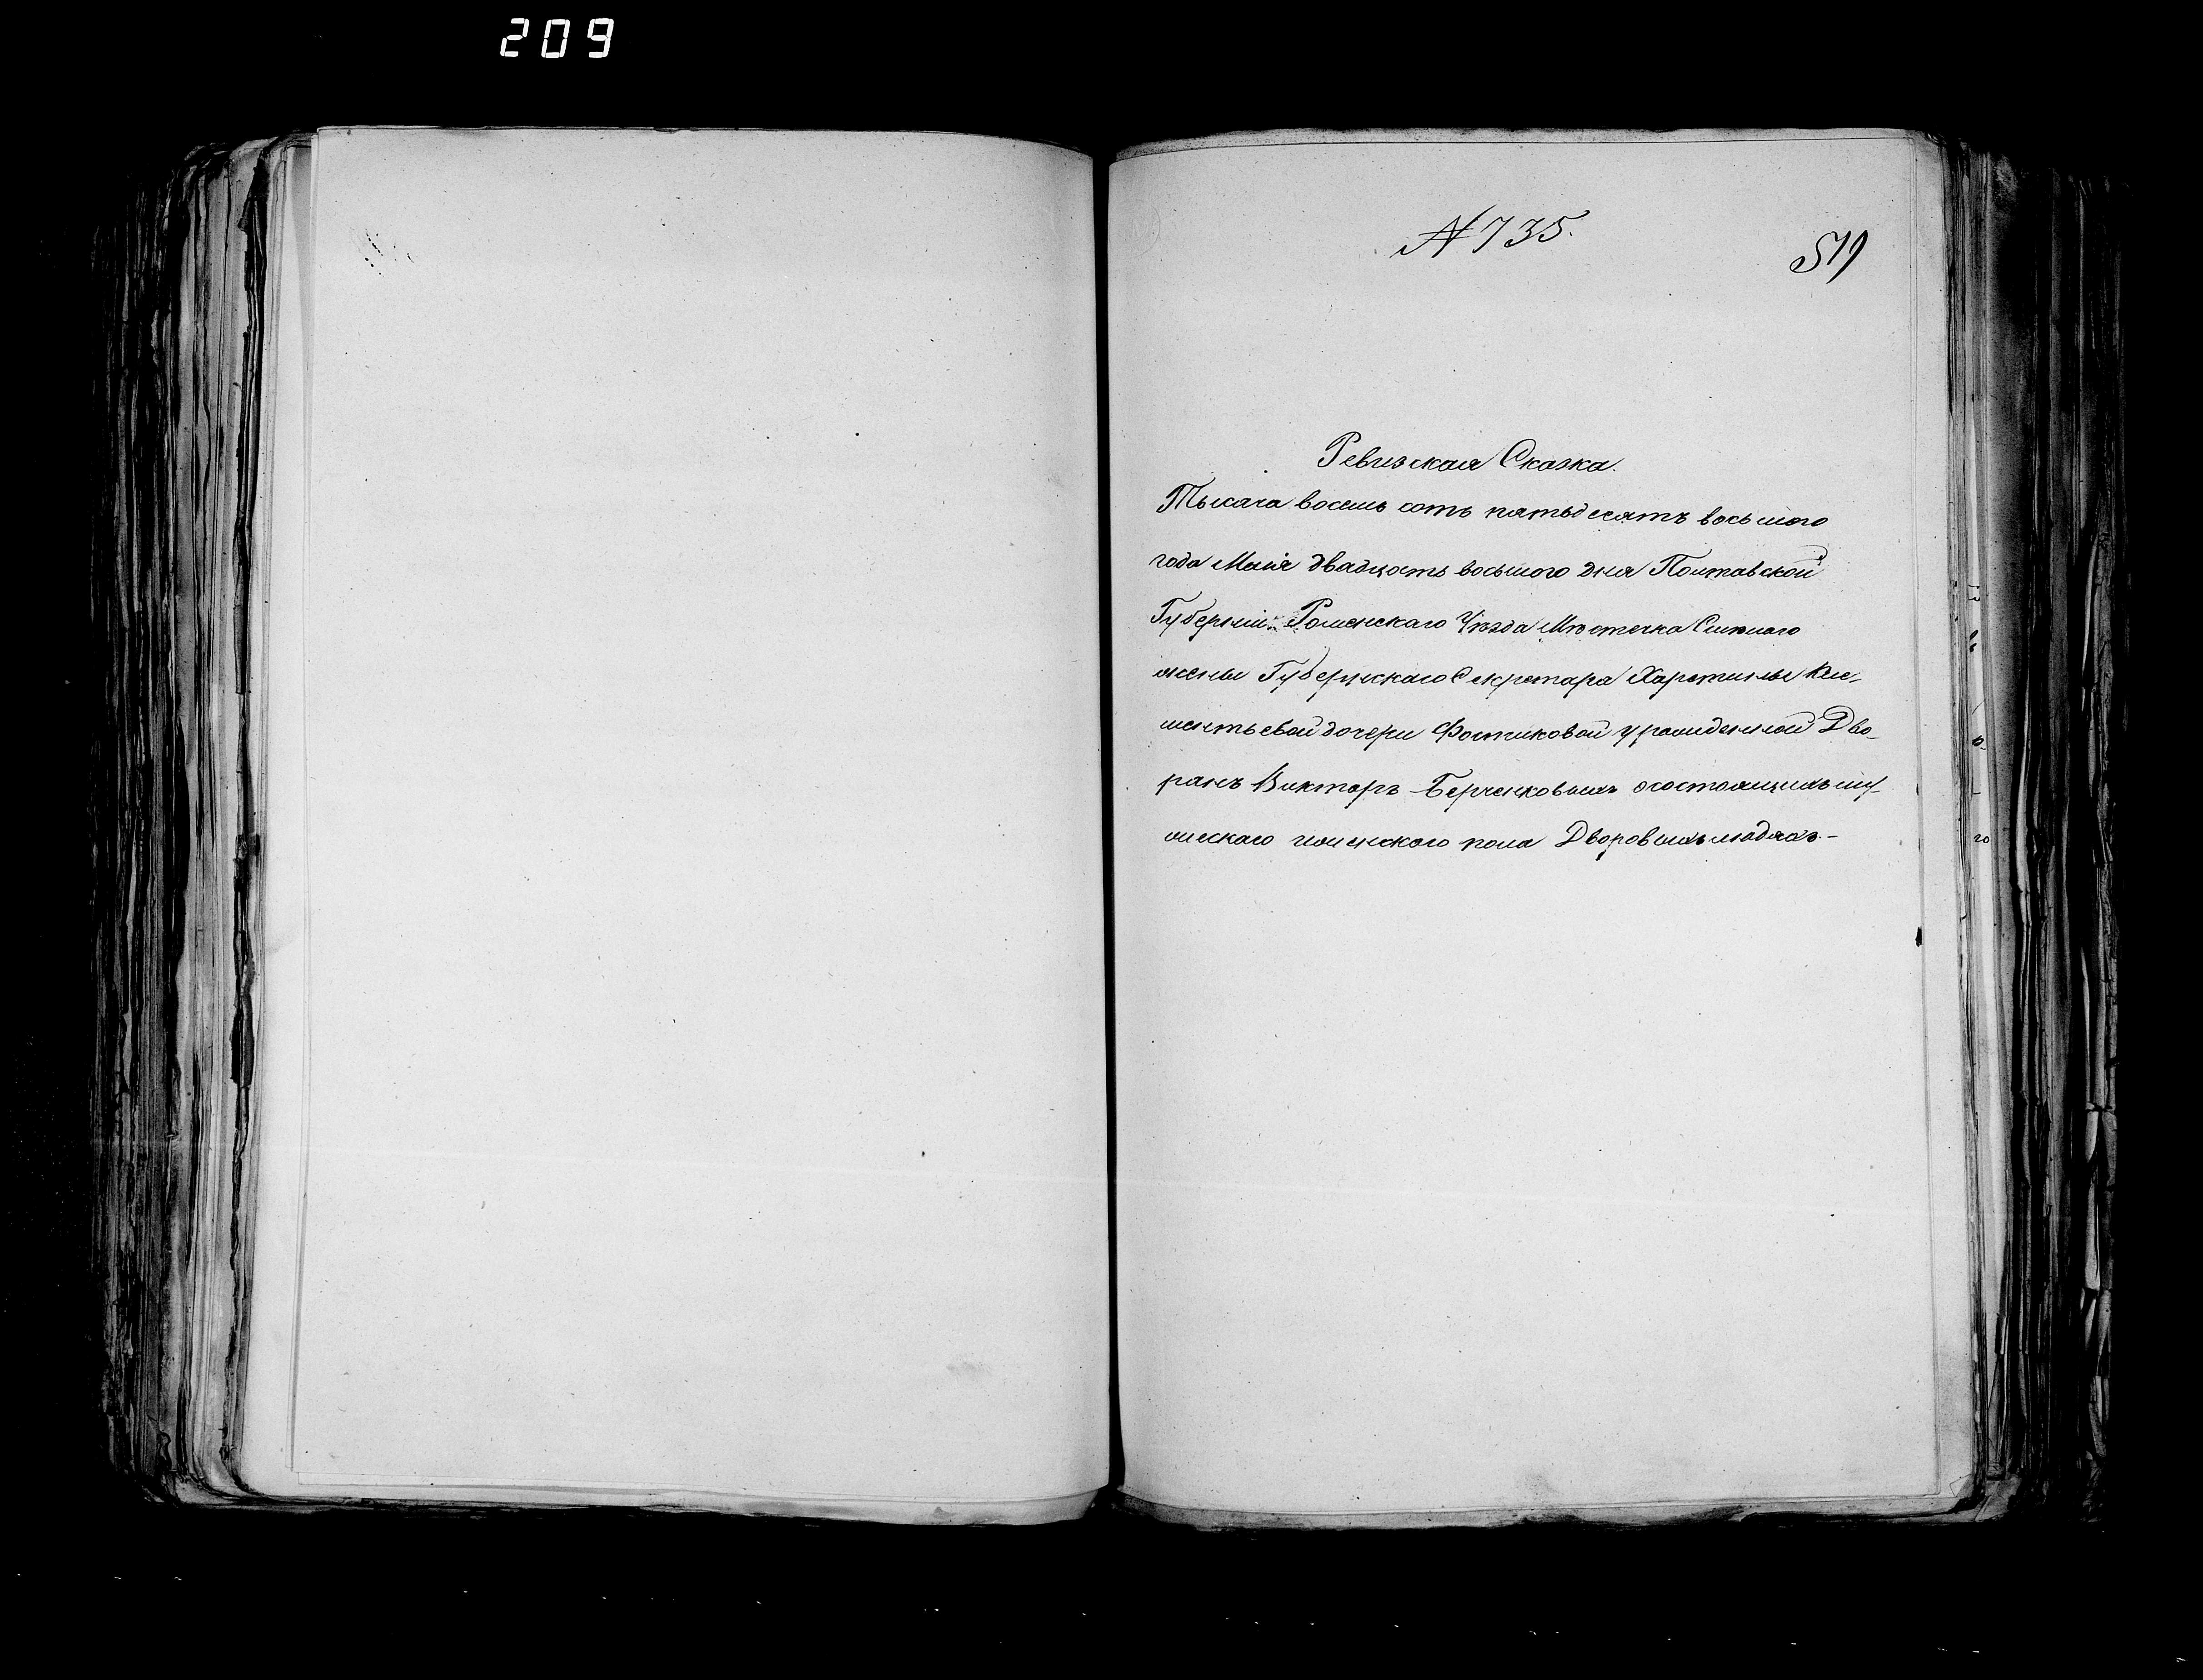 209
N 735.
519
Ревизская Сказка.
Тысяча восемь сотъ пятьдесятъ восьмого
года Маія двадцать восьмого дня Полтавской
Губерніи Роменскаго Уѣзда Мѣстечка Смѣлаго
жены Губернскаго Секретара Харитины Кле-
ментьевой дочери Фотиковой урожденной Дво-
ранъ Викторъ Берченковыхъ о состоящихъ му-
жескаго и женского пола Дворовыхъ людяхъ-
го